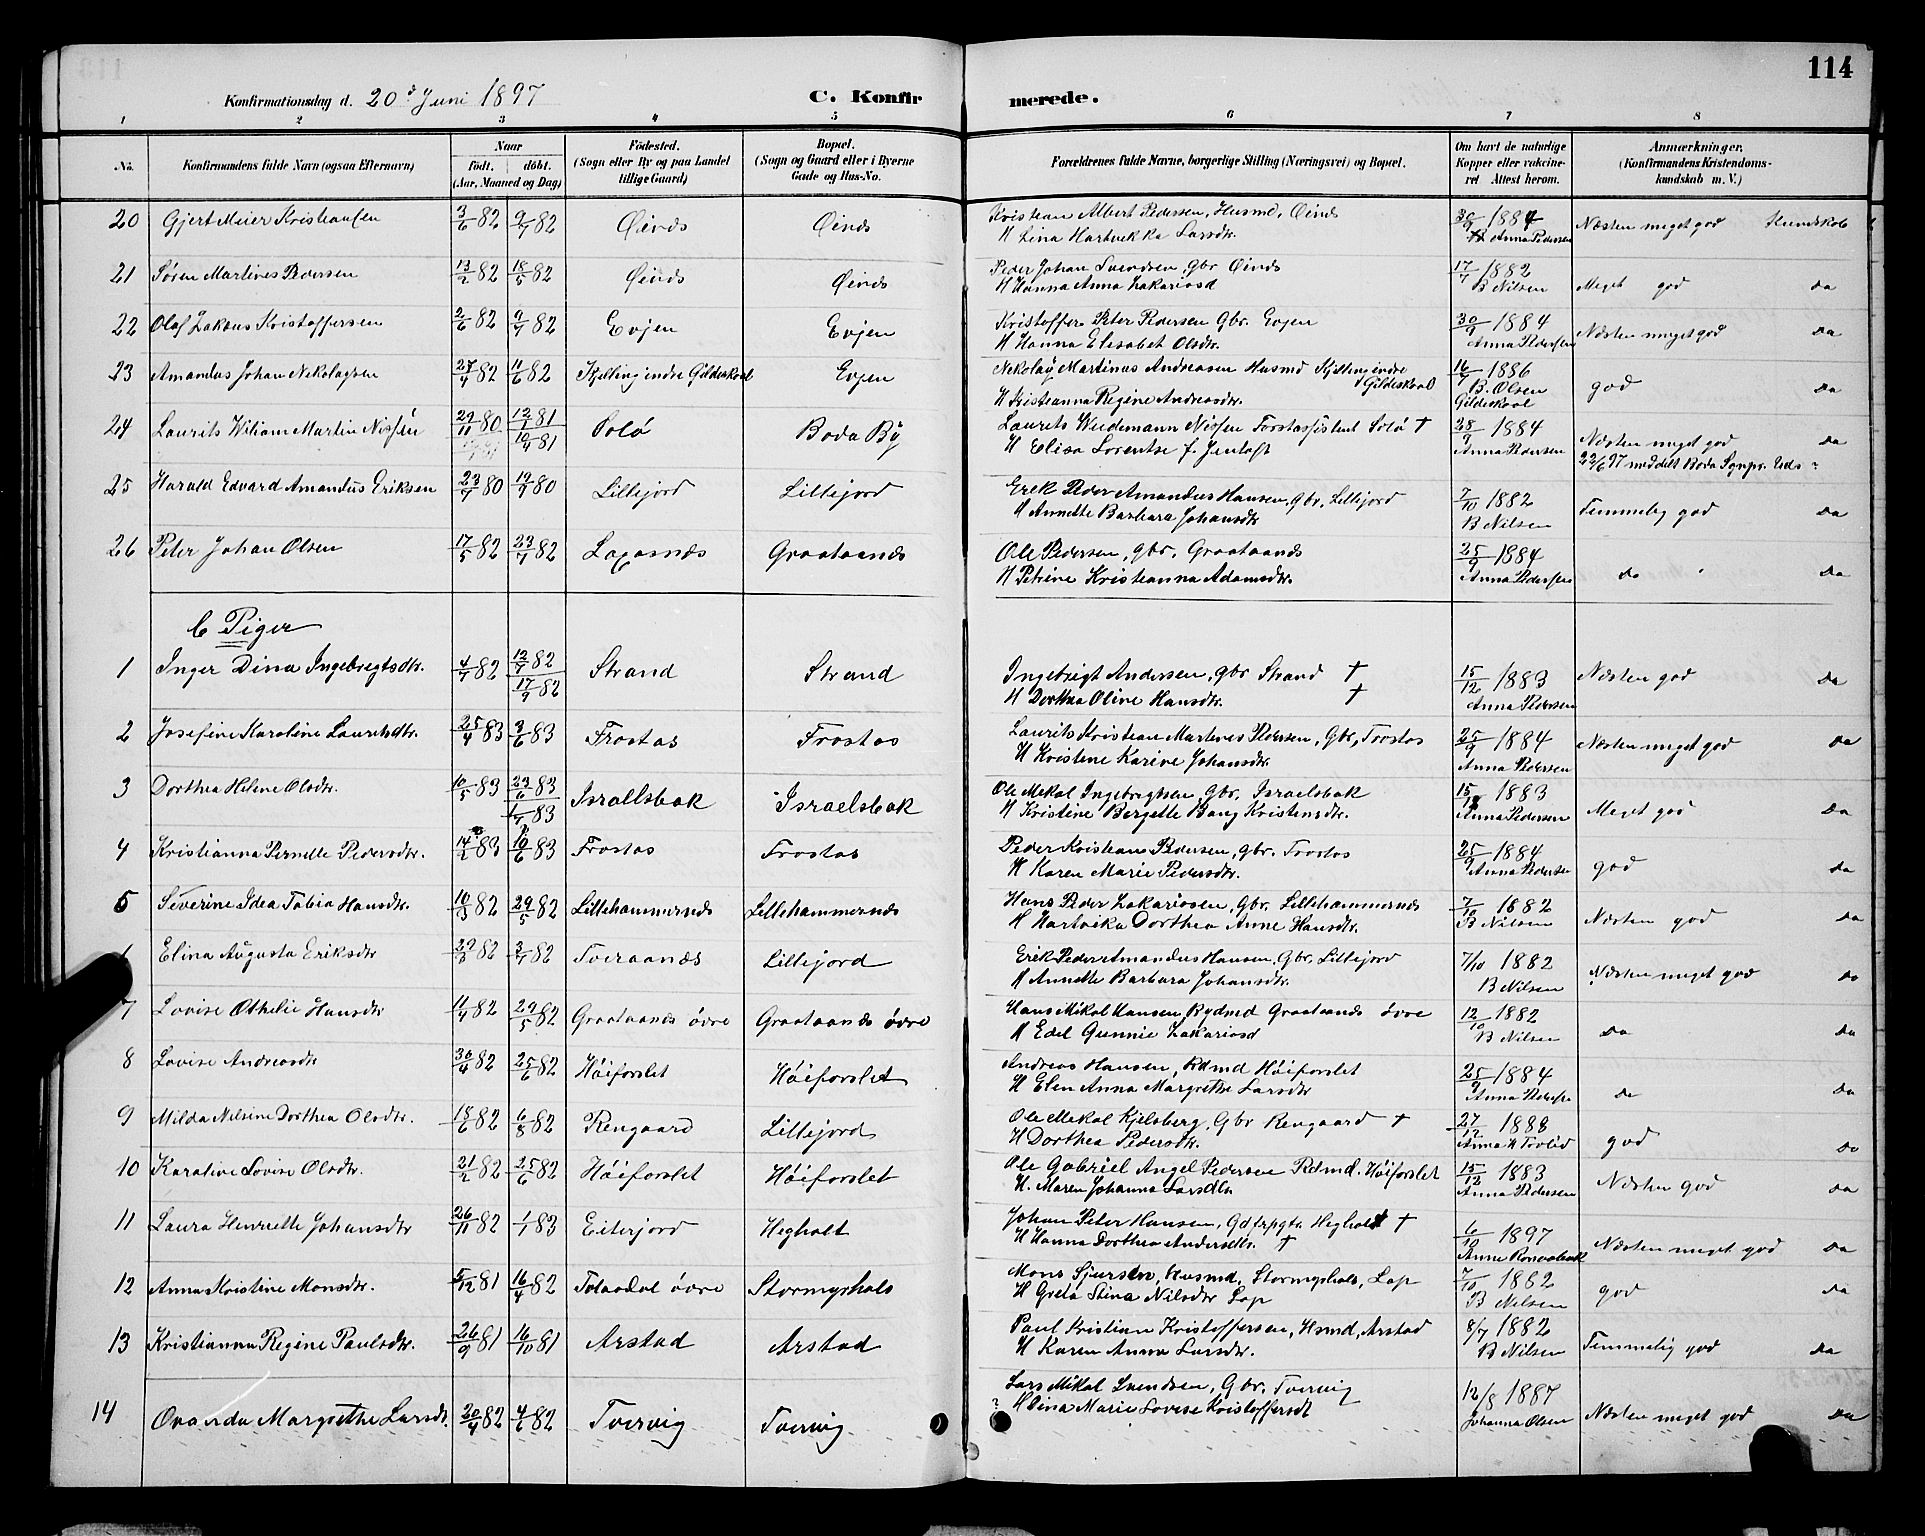 114
Konfirmationsdag d. 20de Juni 1897 C. Konfirmerede.
1 2 3 4 5 6 7 8
No. Konfirmandens fulde Navn (ogsaa Efternavn) Naar født. døbt. (Aar, Maaned og Dag) Fødested. (Sogn eller By og paa Landet tillige Gaard) Bopæl. (Sogn og Gaard eller i Byerne Gade og Hus-No. Forældrenes fulde Navne, borgerlige Stilling (Næringsvei) og Bopæl. Om havt de naturlige Kopper eller vaccineret Attest herom. Anmærkninger. (Konfirmandens Kristendomskundskab m. V.)
20 Gjert Meier Kristiansen 3/6 82 9/7 82 Øinds Øinds Kristian Albert Pedersen, Husmd, Øinds 30/9 1884 Næsten meget god Kundskab
H Lina Hartvikka Larsdtr. Anna Pedersen
21 Søren Martines Pedersen 13/2 82 18/5 82 Øinds Øinds Peder Johan Svendsen, gbr Øinds 17/7 1882
H Hanna Anna Zakariasd B Nilsen Meget god Da
22 Olaf Zakæus Kristoffersen 2/6 82 9/7 82 Evjen Evjen Kristoffer Peter Pedersen Gbr. Evjen 30/9 1884 Næsten meget god Da
H Hanna Elisabet Olsdtr. Anna Pedersen
23 Amandus Johan Nikolaysen 27/4 82 11/6 82 Kjelling indre Gildeskaal Evjen Nikolay Martinus Andreasen Husmd Kjelling indre Gildeskaal 16/7 1886 god Da
H Kristianna Regine Andreasdtr. B. Olsen Gildeskaal
24 Laurits Wiliam Martin Nissen 29/11 80 12/1 81 Solø Bodø By Laurits Weidemann Nissen Forstassistent Solø † 28/9 1884 Næsten meget god Da
10/4 81 H Elisa Lorentse f. Jentoft Anna Pedersen 22/6 97 meddelt Bodø Sognpr.
25 Harald Edvard Amandus Eriksen 23/7 80 19/9 80 Lillejord Lillejord Erik Peder Amandus Hansen, gbr, Lillejord 7/10 1882 Temmelig god Da
H Annette Barbara Johansdtr B Nilsen
26 Peter Johan Olsen 17/5 82 23/7 82 Laxosnæs Graataanæs Ole Pedersen, gbr, Graataanæs 25/9 1884
H Petrine Kristianna Adamsdtr. Anna Pedersen Do Da
C Piger
1 Inger Dina Ingebrigtsdtr. 4/7 82 12/7 82 Strand Strand Ingebrigt Andersen, gbr Strand † 15/12 1883 Næsten god Da
17/9 82 H Dorthea Oline Hansdtr. † Anna Pedersen
2 Josefine Karoline Lauritsdtr. 25/4 83 3/6 83 Frostos Frostos Laurits Kristian Martines Pedersen, Gbr, Frostos 25/9 1884 Næsten meget god Da
H Kristine Karine Johansdtr. Anna Pedersen
3 Dorthea Helene Olsdtr. 10/5 83 23/6 83 Israelsbak Israelsbak Ole Mikal Ingebrigtsen, Gbr, Israelsbak 15/12 1883 Meget god Da
1/7 83 H Kristine Bergette Bang Kristensdtr. Anna Pedersen
4 Kristianna Pernelle Pedersdtr. 14/2 83 10/6 83 Frostos Frostos Peder Kristian Pedersen, gbr. Frostos 25/9 1884 god Da
H Karen Marie Pedersdtr. Anna Pedersen
5 Severine Idea Tobia Hansdtr. 10/3 82 29/5 82 Lillehammernæs Lillehammernæs Hans Peder Zakariasen, Gbr, Lillehammernæs 7/10 1882 Næsten god Da
H Hartvika Dorthea Anne Hansdtr. B Nilsen
Elina Augusta Eriksdtr 82 3/7 82 Tveraanæs Lillejord Erik Peder Amandus Hansen, Gbr. Lillejord 7/10 1882 Næsten meget god Do
H Annette Barbara Johansdtr. B Nilsen
7 Lovise Othelie Hansdtr 11/4 82 29/5 82 Graataanæs øvre Graataanæs øvre Hans Mikal Hansen Rydmd Graataanæs øvre 12/10 1882 Da Da
H Edel Gunnie Zakariasd B Nilsen
8 Lovise Andreasdtr 30/4 82 25/6 82 Høiforslet Høiforslet Andreas Hansen, Rdmd Høiforslet 25/9 1884 Do Da
H Elen Anna Margrethe Larsdtr Anna Pedersen
9 Milda Nilsine Dorthea Olsdtr. 18/6 82 6/8 82 Rengaard Lillejord Ole Mikal Kjelsberg, Gbr Rengaard † 27/12 1888 god Do
H Dorthea Pedersdtr. Anna
10 Karoline Lovise Olsdtr. 21/2 82 25/6 82 Høiforslet Høiforslet Ole Gabriel Angel Pedersen Rdmd. Høiforslet 15/12 1883 Næsten god Da
H. Maren Johanna Larsdtr Anna Pedersen
11 Laura Henriette Johansdtr 26/11 82 1/1 83 Eiterjord Heghalt Johan Peter Hansen, Gdfrpgtr Heghalt † 6/10 1897 Næsten meget god Da
H Hanna Dorthea Andersdtr. † Anne
12 Anna Kristine Monsdtr. 5/12 81 16/4 82 Tolaadal øvre Stormyrhals Mons Sjursen, Husmd, Stormyrhals, Lap 7/10 1882 god Da
H Greta Stina Nilsdtr Lap B Nilsen
13 Kristianna Regine Paulsdtr. 26/9 81 16/10 81 Arstad Arstad Paul Kristian Kristoffersen, Hsmd, Arstad 8/7 1882 Temmelig god Da
H Karen Anna Larsdtr. B Nilsen
14 Ovanda Margrethe Larsdt. 20/4 82 4/6 82 Tvervig Tvervig Lars Mikal Svendsen, Gbr, Tvervig 12/8 1887 Næsten meget god Da
H Dina Marie Lovise Kristoffersdt Johanna Olsen